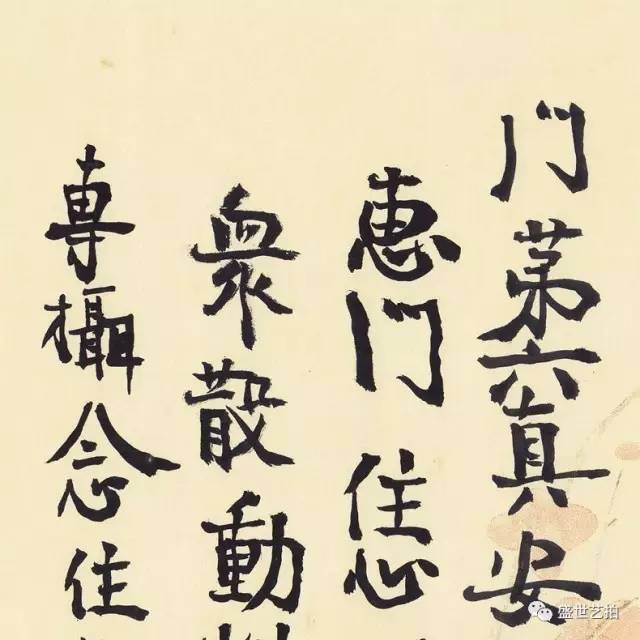 门苐六真安
惠门住心
衆散動
専攝念住
盛世艺拍